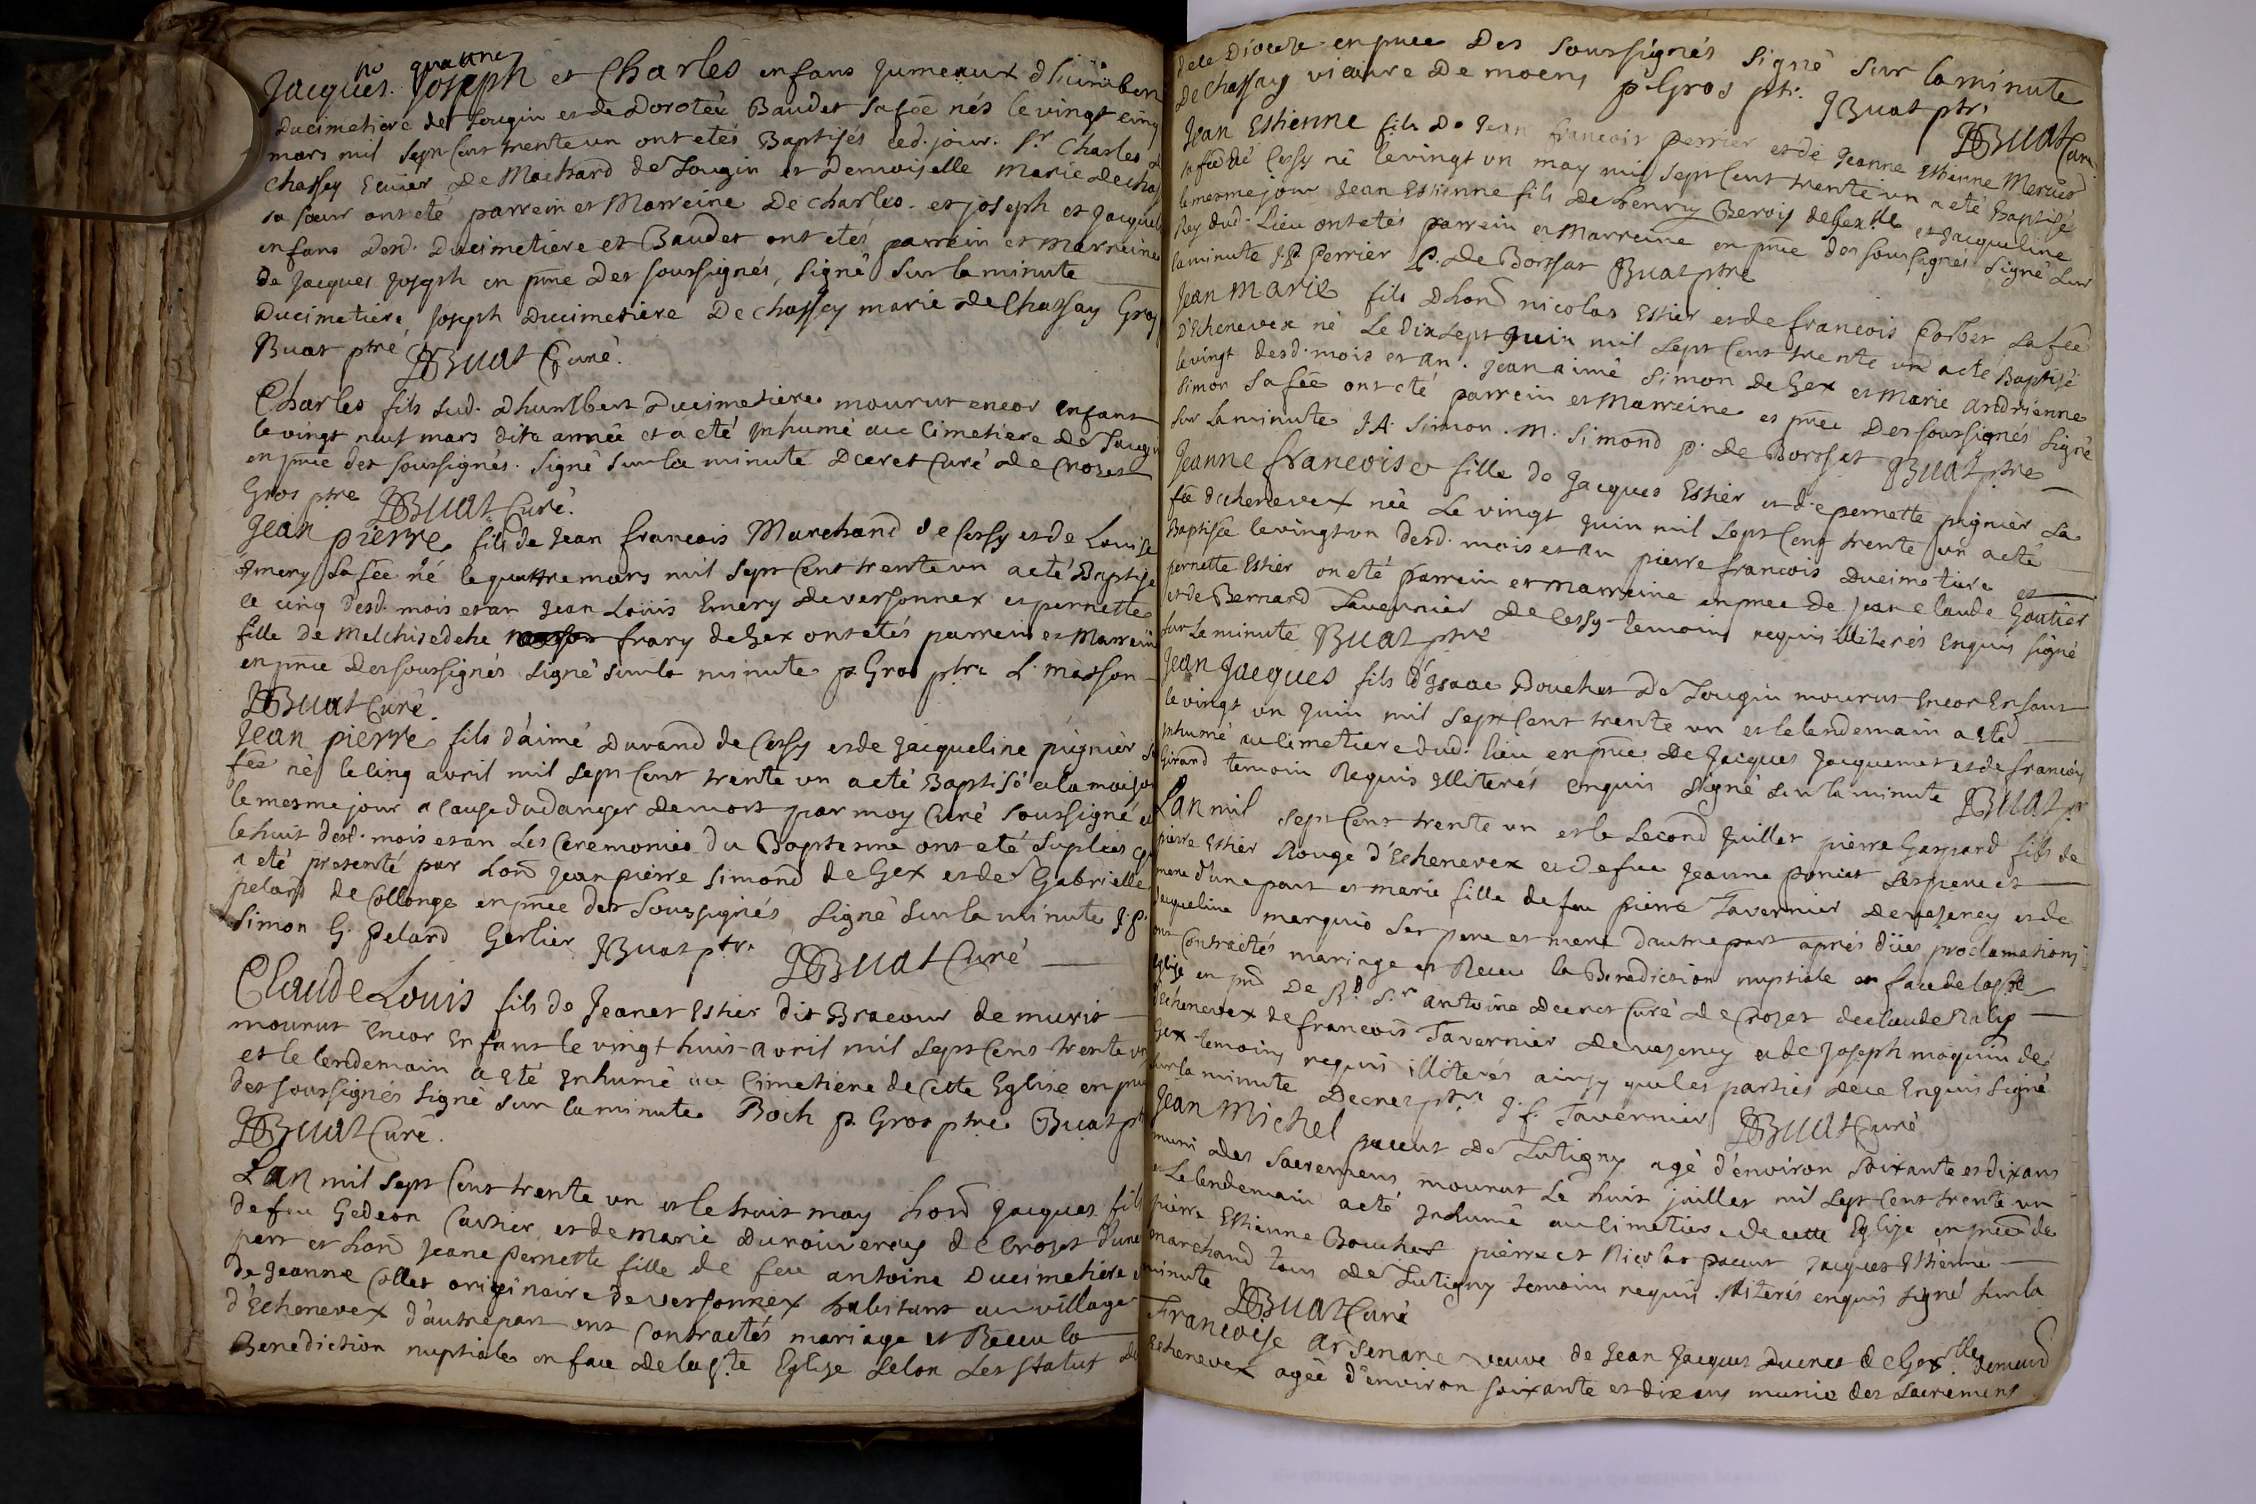 no quattre
Jacques Joseph et Charles enfans Jumeaux d'humbert
Ducimetiere de Tougin et de Dorotée Baudet sa fẽe nés le vingt cinq
mars mil sept Cent trente un ont etés Baptisés led. jour. Sr. Charles de
chassey Ecuier De Machard de Tougin et Demoiselle Marie de chas
sa sœur ont eté parrein et Marreine De charles. et joseph et Jacquel
enfans desd. Ducimetiere et Baudet ont etés parrein et marreine
de Jacques Joseph en pñce Des soussignés, signé sur la minute
Ducimetiere, Joseph Ducimetiere De chassey marie de Chassay Gros
Buat ptre JBuat Curé.
Charles fils dud. d'humbert Ducimetiere mourut encor enfant
le vingt neuf mars dite année et a eté inhumé au Cimetiere de Tougin
en pñce des soussignés. Signé sur la minute Decret Curé de Crozet
Gros ptre JBuat Curé.
Jean pierre fils de Jean francois Marchand de Cessy et de Louise
Emery sa fẽe né le quattre mars mil sept Cent trente un a eté Baptisé
le cinq desd. mois et an Jean Loüis Emery de versonnex et pernette
fille de Melchisedehc frary de Gex ont etés parrein et Marrein
en pñce des soussignés signé sur la minute p. Gros ptre L. masson
JBuat Curé.
Jean pierre fils d'aimé Durand de Cessy et de Jacqueline pignier sa
fẽe né le Cinq avril mil sept Cent trente un a eté Baptisé a la maison
le mesme jour a Cause du danger de mort par moy Curé soussigné et
le huit desd. mois et an Les Ceremonies du Baptesme ont eté suplées
a eté presenté par hoñ Jean pierre Simond de Gex et de Gabrielle
pelard de Collonge en pñce des Soussignés signé sur la minute J.P.
Simon G. pelard Gerlier JBuat ptre JBuat Curé
Claude Louis fils de Jeanet Estier dit Bracour de murit
mourut encor Enfant le vingt huit avril mil sept Cent trente un
et le lendemain a eté Inhumé au Cimetiere de Cette Eglise en pñce
des soussignés signé sur la minute Roch p. Gros ptre Buat pt
JBuat Curé.
L'an mil sept Cent trente un et le huit may hoñ Jacques fils
de feu Gedeon Cartier et de Marie de Crozet d'une
part et hoñ Jeane pernette fille de feu antoine Ducimetiere et
de Jeanne Collet originaire de versonnex habitant au village
d'Echenevex d'autre part ont Contractés mariage et Receu la
Benediction nuptiale en face de la ste Eglise selon Les statut de
de le Diocese en pñce Des soussignés signé sur la minute
De Chassay vicaire De moens p. Gros ptr. JBuat ptr.
JBuat Curé
Jean Estienne fils de Jean francois perrier et de Jeanne Estienne Mercier
sa fẽe de Cessy né le vingt un may mil sept Cent trente un a eté Baptisé
le mesme jour Jean Estienne fils de henry de Gex et Jacqueline
Ray dud. Lieu ont etés parrein et Marreine en pñce des soussignés signé sur
la minute J.P. Perrier P. De Borssat Buat ptre
Jean Marie fils d'hoñ nicolas Estier et de francois Corbet sa fẽe
D'Echenevex né Le dix sept juin mil sept Cent trente un a eté Baptisé
le vingt desd. mois et an. Jean aimé Simon de Gex et Marie andrienne
simon sa fẽe ont eté parrein et Marreine et pñce Des soussignés signé
sur La minute J.A. Simon. M. Simond p. De Borssat JBuat ptre
Jeanne francoise fille de Jacques Estier et de pernette pignier sa
fẽe d'chenevex née Le vingt juin mil sept Cent trente un a eté
Baptisée le vingt un desd. mois et an pierre francois Ducimetiere et
pernette Estier on eté parrein et marreine en pñce de Jean Claude Goutier
et de Bernard Tavernier de Cessy temoins requis illiterés enquis signé
sur La minute Buat ptre
Jean Jacques fils d'Isaac Bouchet De Tougin mourut encor Enfant
le vingt un juin mil sept Cent trente un et le lendemain a eté
inhumé au Cimetiere dud. lieu en pñce De Jacques Jacquemet et de francois
Girard temoin Requis illiterés enquis signé sur la minute JBuat pr
L'an mil sept Cent trente un et le second juillet pierre Gaspard fils de
pierre Estier Rouge d'Echenevex et Defue Jeanne ponut ses pere et
mere d'une part et marie fille de feu pierre Tavernier de vesency et de
Jacqueline marquis ses pere et mere d'autre part aprés düe proclamations
ont Contractés mariage et Receu la Benediction nuptiale en face de la ste
Eglise en pñce De Rd. Sr. antoine Decret Curé de Crozet de claude Ralip
d'chenevex de francois Tavernier de vesency et de Joseph maquin de
Gex temoins requis illiterés ainsy que les parties de ce Enquis signé
sur la minute Decret ptre J.f. Tavernier JBuat Curé
Jean Michel pacut de Tutigny agé d'environ soixante et dix ans
muni des sacremens mourut Le huit juillet mil sept Cent trente un
et Le lendemain a eté inhumé au Cimetiere de cette Eglise en pñce de
pierre Estienne Bouchet pierre et Nicolas pacut Jacques Estienne
marchand tous de Tutigny temoins requis illiterés enquis signé sur la
minute JBuat Curé
Francoise arsenane veuve de Jean Jacques Ducret de Gex demeurd
Echenevex agée d'environ soixante et dix ans munie des sacremens